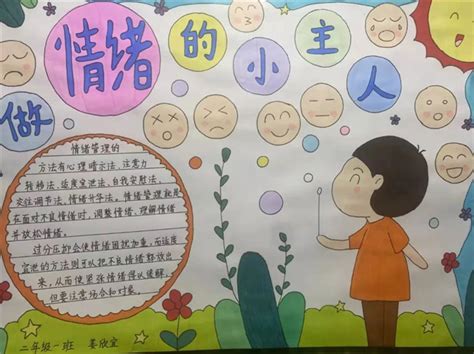 做情绪的小主人
情绪管理的
方法有心理暗示法、注意力
转移法、适度宣泄法、自我安慰法、
交往调节法、情绪升华法。情绪管理就是
在面对不良情绪时,调整情绪、理解情绪
并放松情绪。
过分压抑会使情绪困扰加重,而适度
宣泄的方法则可以把不良情绪释放出
来,从而使紧张情绪得以缓解,
但要注意场合和对象。
二年级一班 姜欣宜